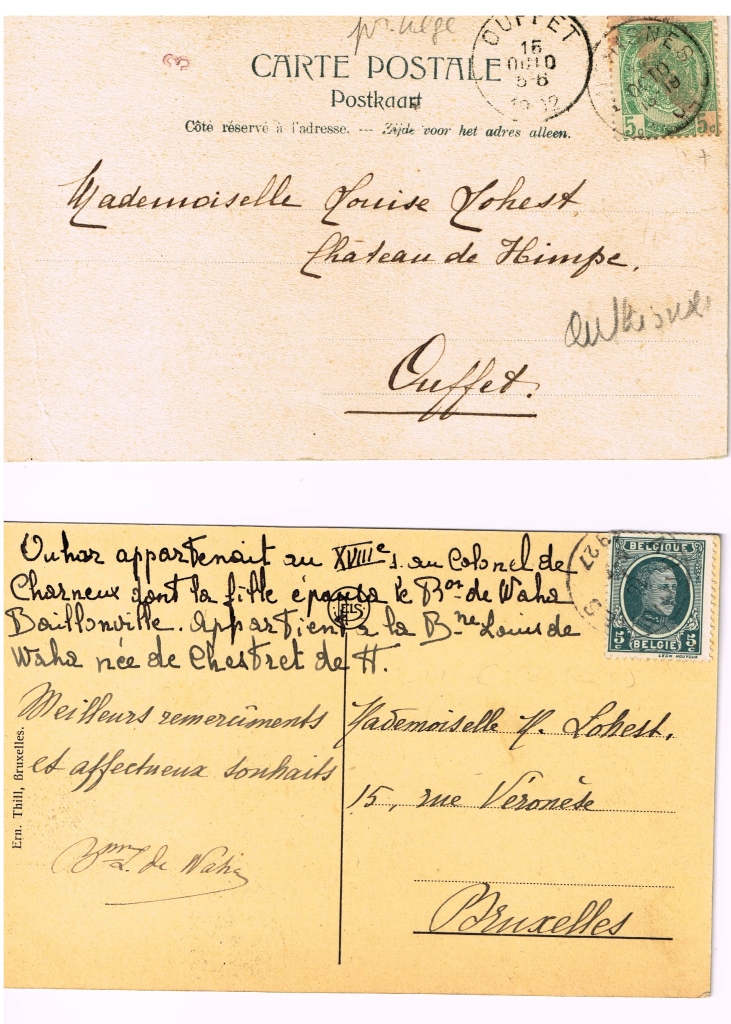 OUFFET
15
OCTO
5-6
CARTE POSTALE
Postkaart
Côté réservé à l'adresse. — Zijde voor het adres alleen.
5c 5c
Mademoiselle Louise Lohest
Château de Himpe,
Ouffet.
Ouhar appartenait au XVIIIe s. au Colonel de
Charneux dont la fille épousa le Bon de Waha
Baillonville. Appartient à la Bne Louis de
Waha née de Chestret de H.
BELGIQUE
5c 5c
BELGIË
ELS
Meilleurs remercîments
et affectueux souhaits
Bnne L. de Waha
Ern. Thill, Bruxelles.
Mademoiselle M. Lohest,
15, rue Véronèse
Bruxelles